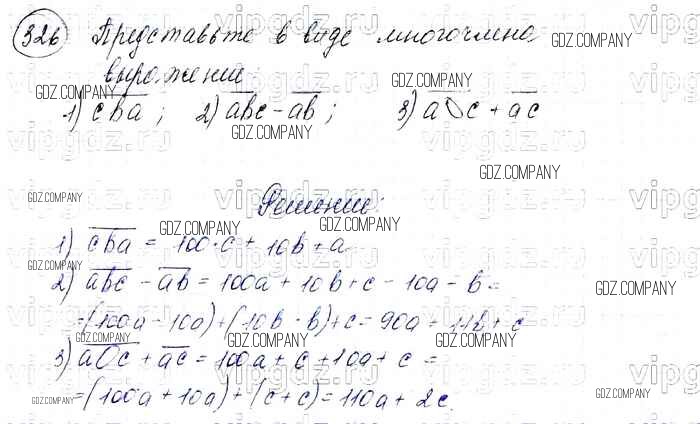 326 Представьте в виде многочлена
выражение
1) c̅b̅a̅ ; 2) a̅b̅c̅ - a̅b̅ ; 3) a̅0̅c̅ + a̅c̅
Решение:
1) c̅b̅a̅ = 100·c + 10b + a
2) a̅b̅c̅ - a̅b̅ = 100a + 10b + c - 10a - b =
=(100a - 10a) + (10b - b) + c = 90a + 11b + c
3) a̅0̅c̅ + a̅c̅ = 100a + c + 10a + c =
=(100a + 10a) + (c + c) = 110a + 2c.
GDZ.COMPANY
vipgdz.ru